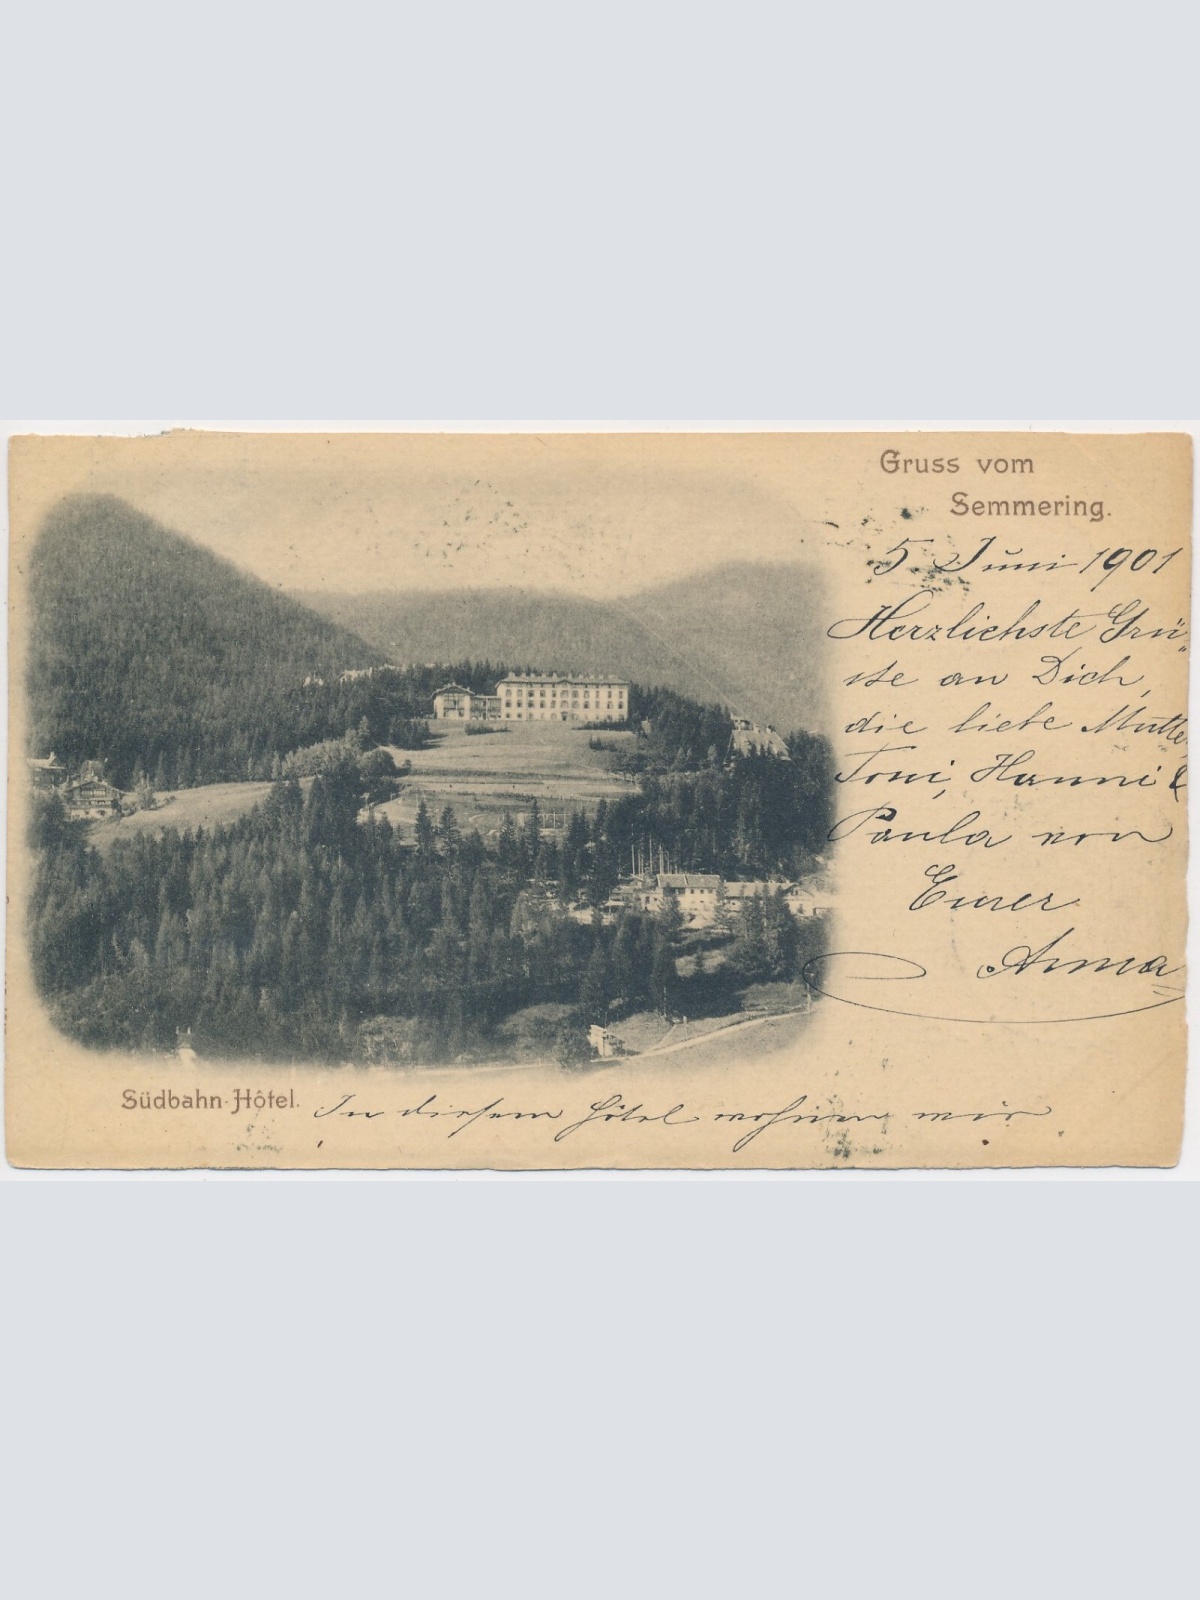 Gruss vom
Semmering.
5 Juni 1901
Herzlichste Grü„
sse an Dich,
die liebe Mutter
Toni, Hanni &
Paula von
Eurer
Anna
Südbahn-Hôtel.
In diesem Hôtel wohnen wir